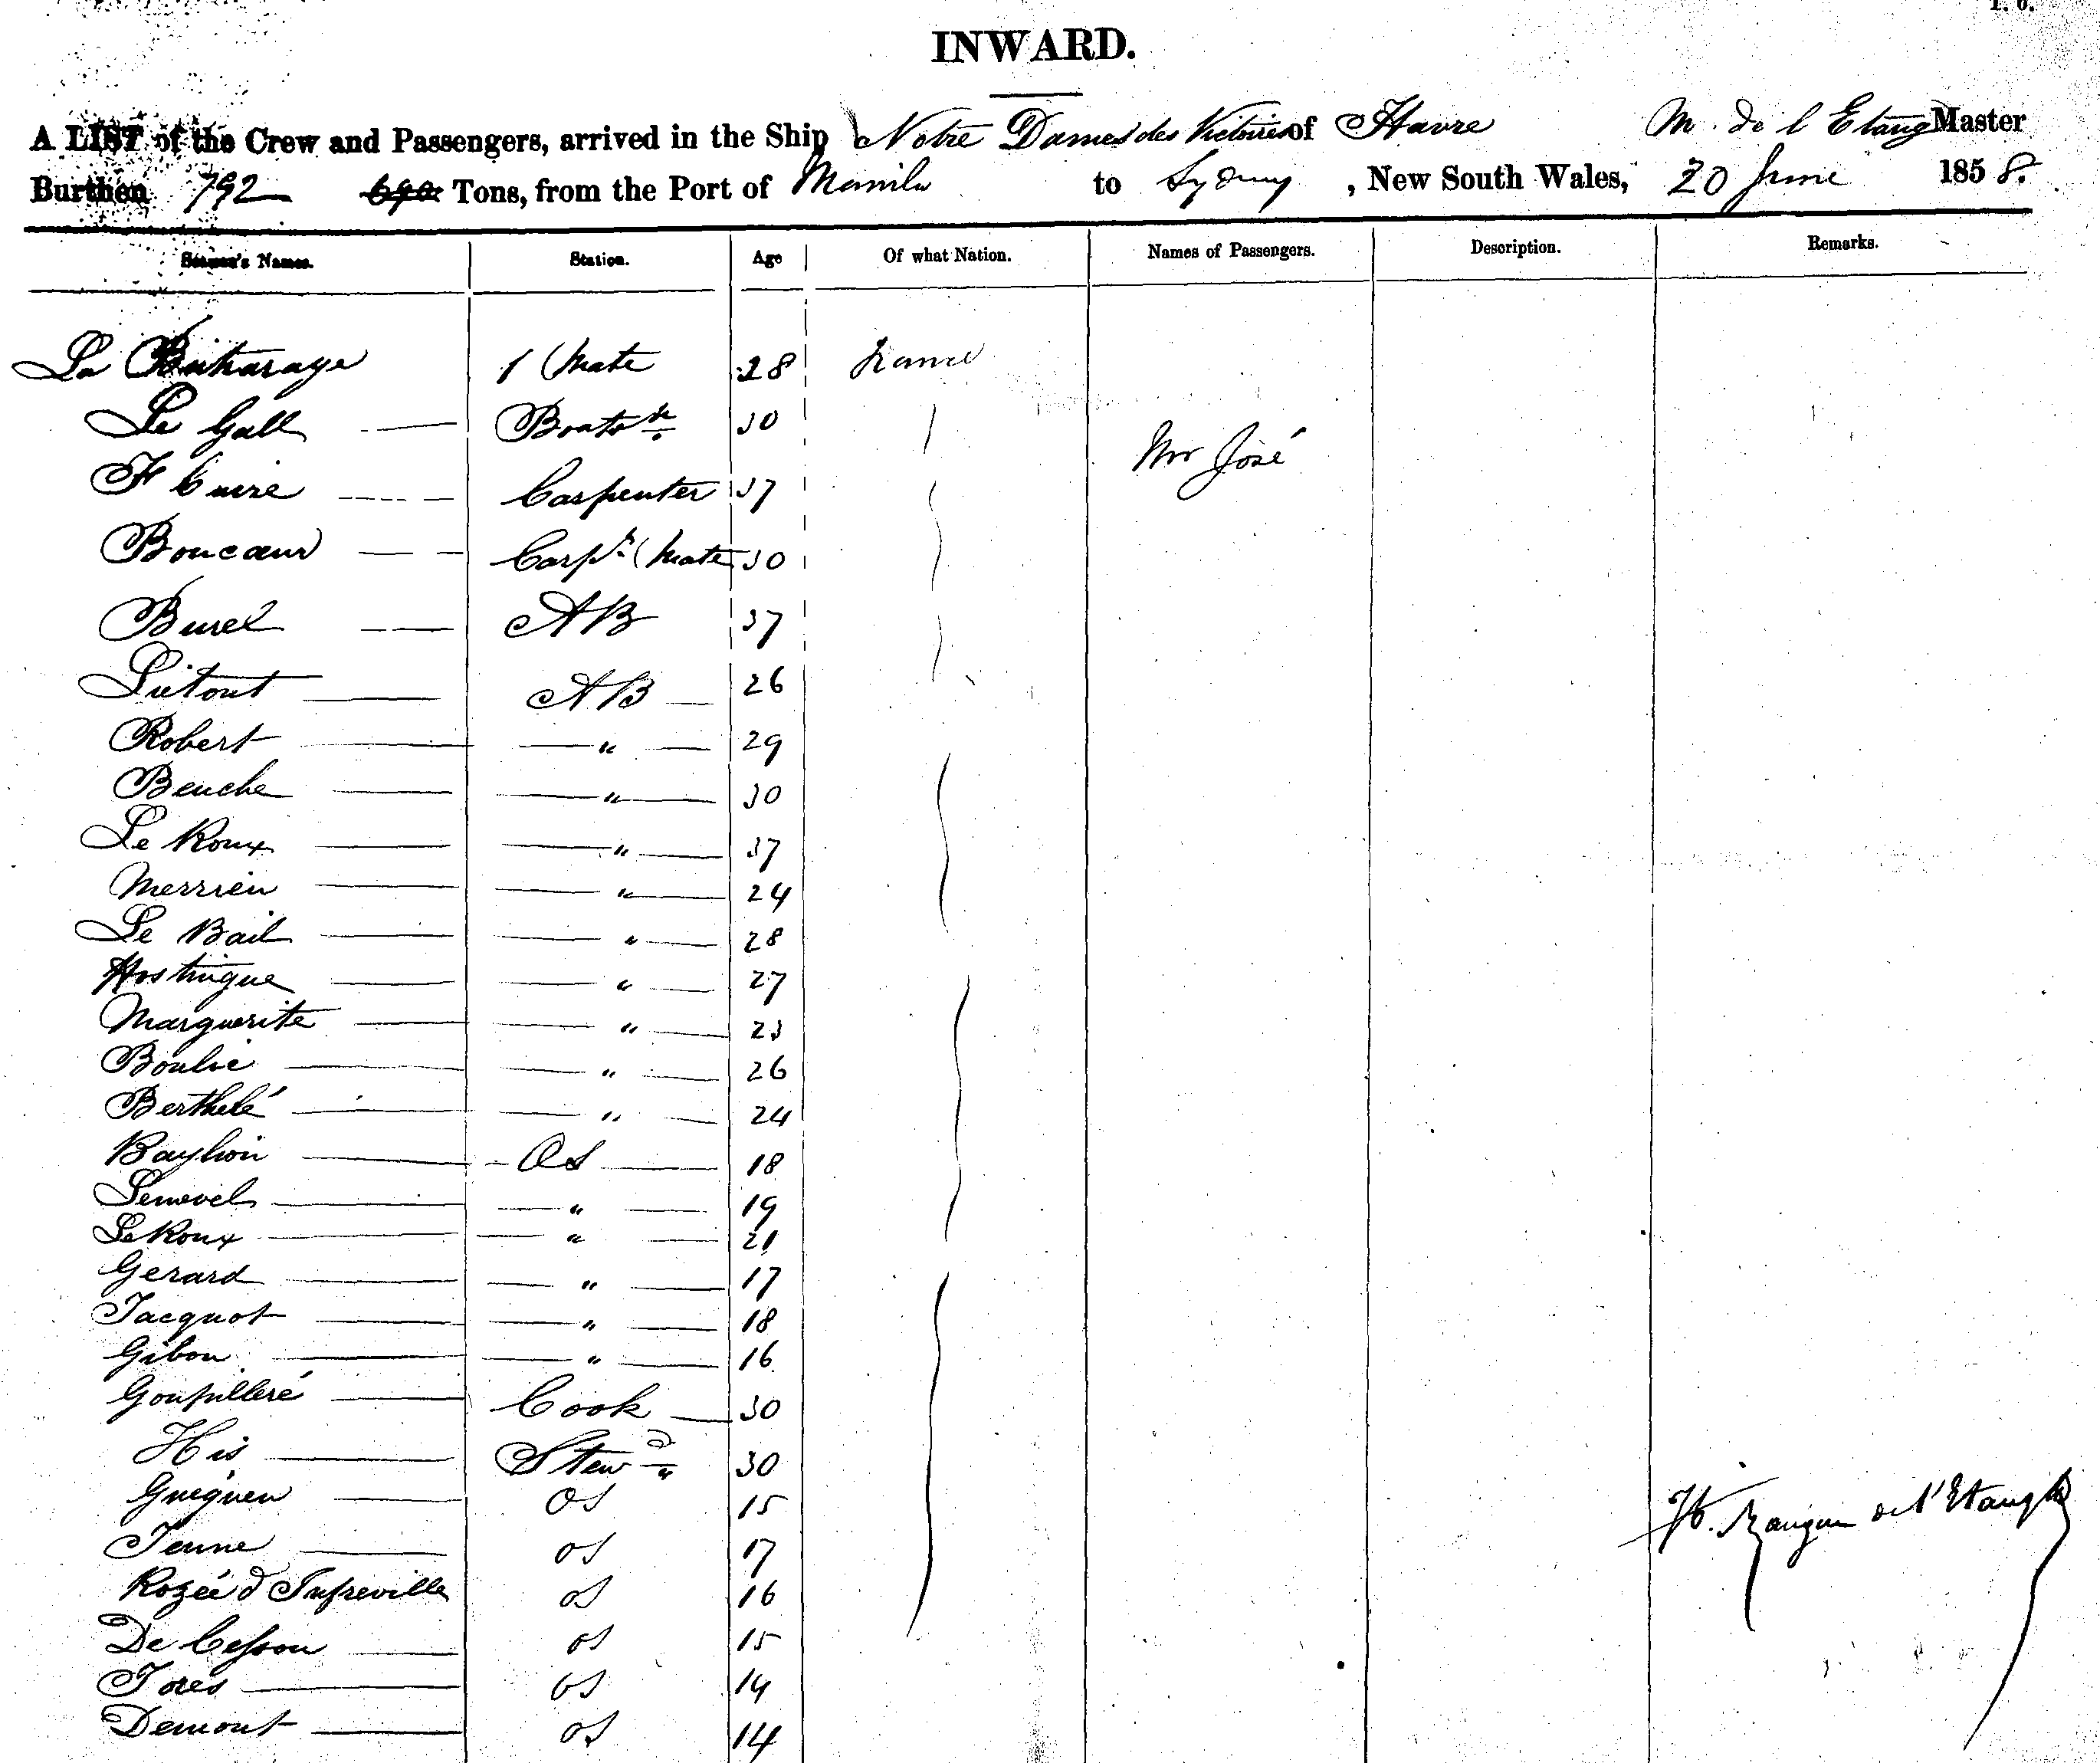 INWARD.
A LIST of the Crew and Passengers, arrived in the Ship Notre Dames des Victoires of Havre M. de l Etang Master
Burthen 792 Tons, from the Port of Manila to Sydney, New South Wales, 20 June 1858.
Seamen's Names. Station. Age Of what Nation. Names of Passengers. Description. Remarks.
La 1 Mate 28 France
Le Gall Boatsn 30
Mr José
Carpenter 37
Boucaeur Carpr Mate 30
Burel AB 37
Lietout AB 26
Robert — " — 29
Beuche — " — 30
Le Roux — " — 37
Merrien — " — 24
Le Bail — " — 28
Hostingue — " — 27
Marguerite — " — 23
Boulie — " — 26
Berthelé — " — 24
Baylion OS 18
Lenevel — " — 19
Le Roux — " — 21
Gerard — " — 17
Jacquot — " — 18
Gibon — " — 16
Goupilleré Cook 30
His Stewd 30
Gueguen OS 15
Jeune OS 17
Rozée d Infreville OS 16
De Cesson OS 15
Jores OS 14
Demont OS 14
de l'Etang